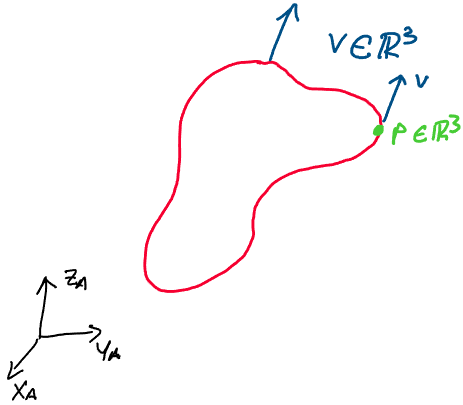 V∈ℝ³
v
P∈ℝ³
Z_A
Y_A
X_A